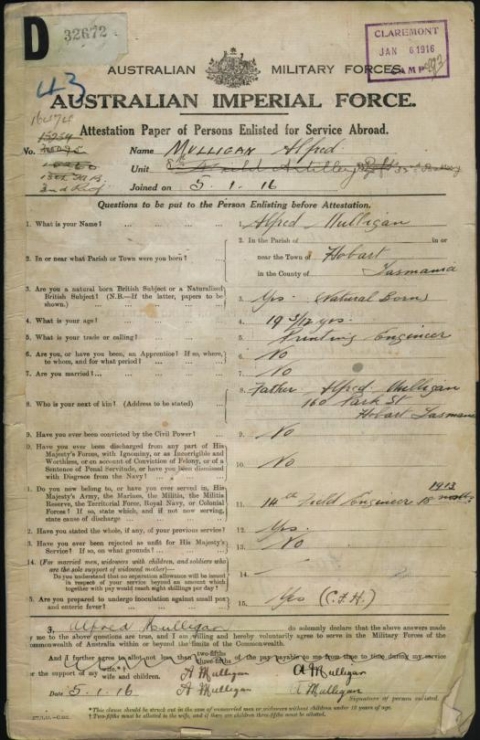 D
32672
CLAREMONT
JAN 6 1916
CAMP
43
AUSTRALIAN MILITARY FORCES.
AUSTRALIAN IMPERIAL FORCE.
Attestation Paper of Persons Enlisted for Service Abroad.
No. Name MULLIGAN Alfred
Unit 8th Field Artillery
Joined on 5.1.16
Questions to be put to the Person Enlisting before Attestation.
1. What is your Name? 1. Alfred Mulligan
2. In or near what Parish or Town were you born? 2. In the Parish of in or
near the Town of Hobart
in the County of Tasmania
3. Are you a natural born British Subject or a Naturalised
British Subject? (N.B.—If the latter, papers to be
shown.) 3. Yes (Natural Born)
4. What is your age? 4. 19 3/12 yrs.
5. What is your trade or calling? 5. Printing Engineer
6. Are you, or have you been, an Apprentice? If so, where,
to whom, and for what period? 6. No
7. Are you married? 7. No
8. Who is your next of kin? (Address to be stated) 8. Father Alfred Mulligan
160 Park St
Hobart Tasmania
9. Have you ever been convicted by the Civil Power? 9. No
10. Have you ever been discharged from any part of His
Majesty's Forces, with Ignominy, or as Incorrigible and
Worthless, or on account of Conviction of Felony, or of a
Sentence of Penal Servitude, or have you been dismissed
with Disgrace from the Navy? 10. No
Do you now belong to, or have you ever served in, His
Majesty's Army, the Marines, the Militia, the Militia
Reserve, the Territorial Force, Royal Navy, or Colonial
Forces? If so, state which, and if not now serving,
state cause of discharge 11. 14th Field Engineer 18 months
1913
12. Have you stated the whole, if any, of your previous service? 12. Yes.
13. Have you ever been rejected as unfit for His Majesty's
Service? If so, on what grounds? 13. No
14. (For married men, widowers with children, and soldiers who
are the sole support of widowed mother—
Do you understand that no separation allowance will be issued
in respect of your service beyond an amount which
together with pay would reach eight shillings per day? 14. —
Are you prepared to undergo inoculation against small pox
and enteric fever? 15. Yes (C.F.H.)
I, Alfred Mulligan do solemnly declare that the above answers made
by me to the above questions are true, and I am willing and hereby voluntarily agree to serve in the Military Forces of the
Commonwealth of Australia within or beyond the limits of the Commonwealth.
And I further agree to allot not less than two-fifths three-fifths of the pay payable to me from time to time during my service
for the support of my wife wife and children. A Mulligan A Mulligan
Date 5.1.16. A Mulligan A Mulligan
Signature of person enlisted.
*This clause should be struck out in the case of unmarried men or widowers without children under 18 years of age.
†Two-fifths must be allotted to the wife, and if there are children three-fifths must be allotted.